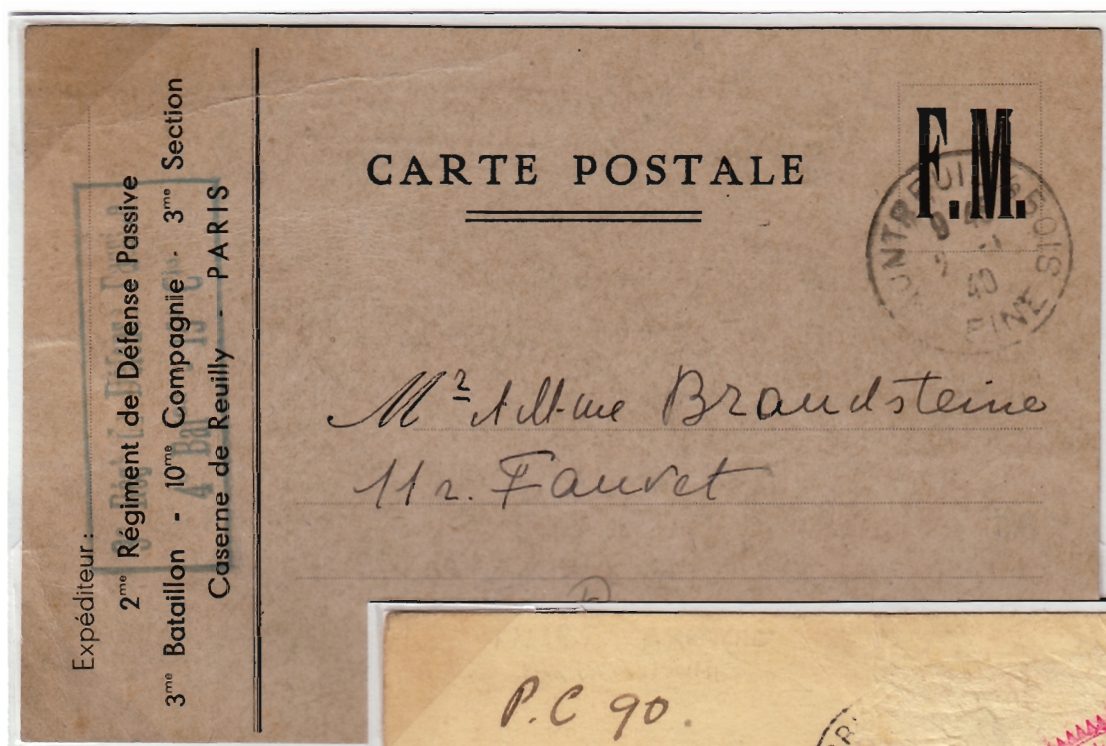 Expéditeur :
2me Régiment de Défense Passive
3me Bataillon - 10me Compagnie - 3me Section
Caserne de Reuilly - PARIS
4 Bat
CARTE POSTALE
F.M.
40
Mr & Mme Brandsteine
11 r. Fauvet
P.C 90.